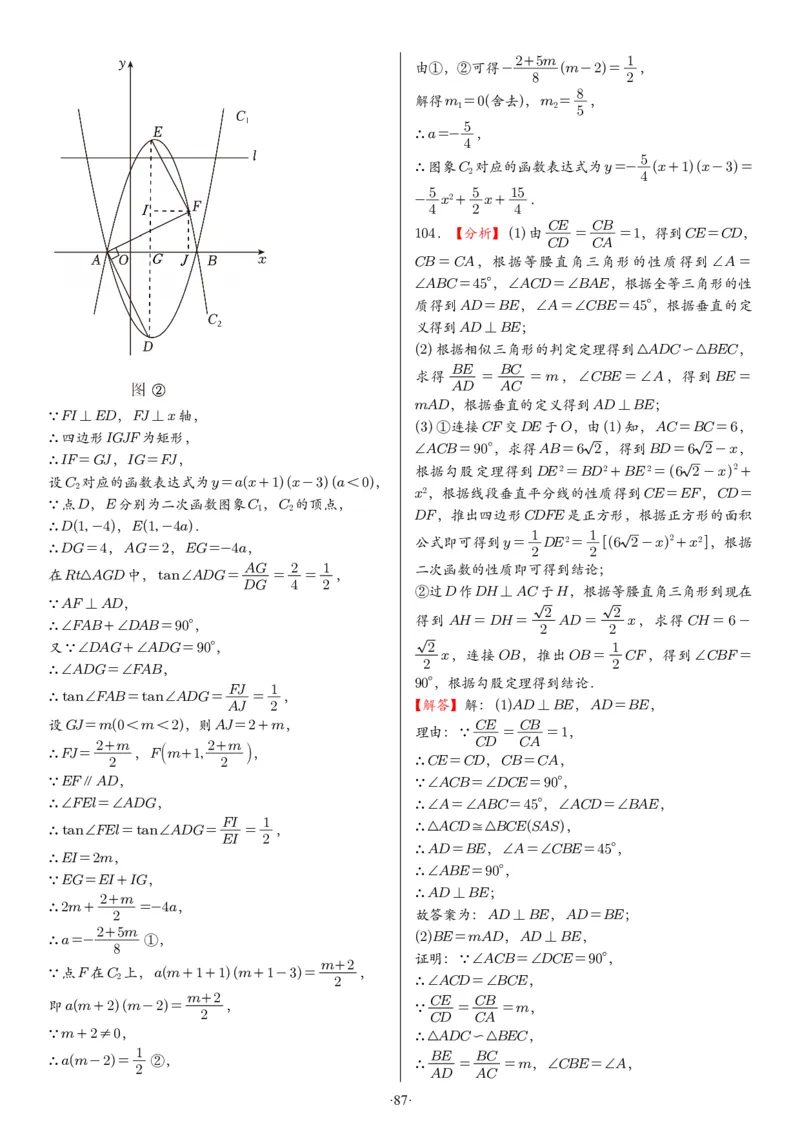 y
C₁
E
l
I
F
A
O
G
J
B
x
C₂
D
图 ②
∵FI⊥ED，FJ⊥x轴，
∴四边形IGJF为矩形，
∴IF=GJ，IG=FJ，
设C₂对应的函数表达式为y=a(x+1)(x-3)(a<0)，
∵点D，E分别为二次函数图象C₁，C₂的顶点，
∴D(1,-4)，E(1,-4a).
∴DG=4，AG=2，EG=-4a，
在Rt△AGD中，tan∠ADG=AG/DG=2/4=1/2，
∵AF⊥AD，
∴∠FAB+∠DAB=90°，
又∵∠DAG+∠ADG=90°，
∴∠ADG=∠FAB，
∴tan∠FAB=tan∠ADG=FJ/AJ=1/2，
设GJ=m(0<m<2)，则AJ=2+m，
∴FJ=(2+m)/2，F(m+1,(2+m)/2)，
∵EF∥AD，
∴∠FEl=∠ADG，
∴tan∠FEl=tan∠ADG=FI/EI=1/2，
∴EI=2m，
∵EG=EI+IG，
∴2m+(2+m)/2=-4a，
∴a=-(2+5m)/8 ①，
∵点F在C₂上，a(m+1+1)(m+1-3)=(m+2)/2，
即a(m+2)(m-2)=(m+2)/2，
∵m+2≠0，
∴a(m-2)=1/2 ②，
由①，②可得-(2+5m)/8(m-2)=1/2，
解得m₁=0(舍去)，m₂=8/5，
∴a=-5/4，
∴图象C₂对应的函数表达式为y=-5/4(x+1)(x-3)=
-5/4x²+5/2x+15/4.
104.【分析】(1)由CE/CD=CB/CA=1，得到CE=CD，
CB=CA，根据等腰直角三角形的性质得到∠A=
∠ABC=45°，∠ACD=∠BAE，根据全等三角形的性
质得到AD=BE，∠A=∠CBE=45°，根据垂直的定
义得到AD⊥BE；
(2)根据相似三角形的判定定理得到△ADC∽△BEC，
求得BE/AD=BC/AC=m，∠CBE=∠A，得到BE=
mAD，根据垂直的定义得到AD⊥BE；
(3)①连接CF交DE于O，由(1)知，AC=BC=6，
∠ACB=90°，求得AB=6√2，得到BD=6√2-x，
根据勾股定理得到DE²=BD²+BE²=(6√2-x)²+
x²，根据线段垂直平分线的性质得到CE=EF，CD=
DF，推出四边形CDFE是正方形，根据正方形的面积
公式即可得到y=1/2DE²=1/2[(6√2-x)²+x²]，根据
二次函数的性质即可得到结论；
②过D作DH⊥AC于H，根据等腰直角三角形到现在
得到AH=DH=√2/2AD=√2/2x，求得CH=6-
√2/2x，连接OB，推出OB=1/2CF，得到∠CBF=
90°，根据勾股定理得到结论.
【解答】解：(1)AD⊥BE，AD=BE，
理由：∵CE/CD=CB/CA=1，
∴CE=CD，CB=CA，
∵∠ACB=∠DCE=90°，
∴∠A=∠ABC=45°，∠ACD=∠BAE，
∴△ACD≅△BCE(SAS)，
∴AD=BE，∠A=∠CBE=45°，
∴∠ABE=90°，
∴AD⊥BE；
故答案为：AD⊥BE，AD=BE；
(2)BE=mAD，AD⊥BE，
证明：∵∠ACB=∠DCE=90°，
∴∠ACD=∠BCE，
∵CE/CD=CB/CA=m，
∴△ADC∽△BEC，
∴BE/AD=BC/AC=m，∠CBE=∠A，
·87·